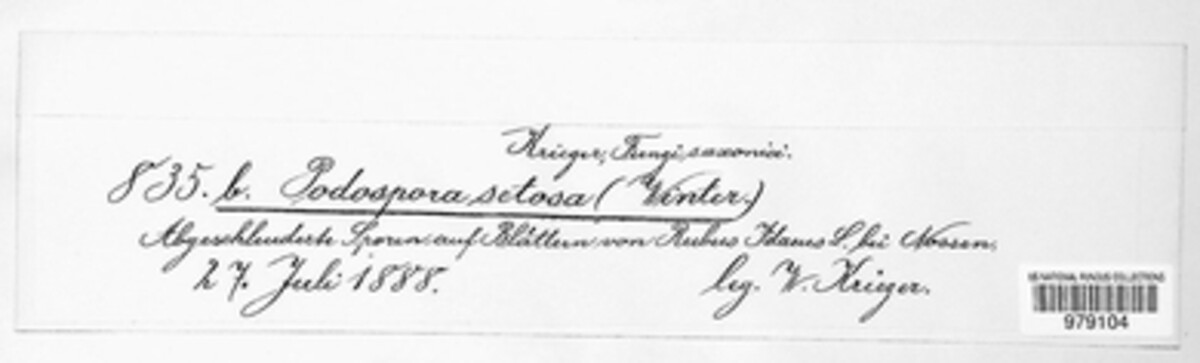 Krieger, Fungi saxonici.
835. b. Podospora setosa (Winter.)
Abgeschleuderte Sporen auf Blättern von Rubus Idaeus L. bei Nossen.
27. Juli 1888. leg. W. Krieger.
US NATIONAL FUNGUS COLLECTIONS
979104